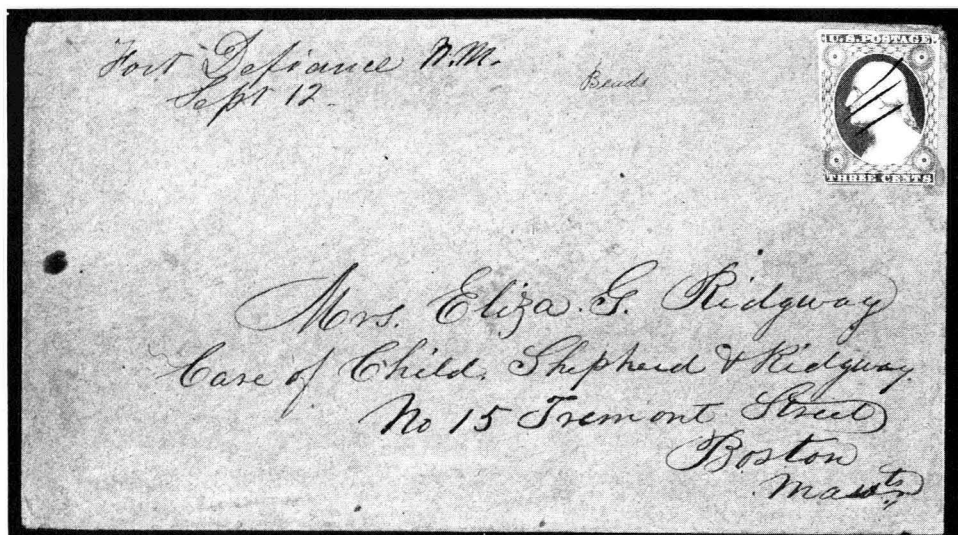 Fort Defiance N.M.
Sept 12
Beads
U.S. POSTAGE
THREE CENTS
Mrs. Eliza. G. Ridgway
Care of Child. Shepherd & Ridgway.
No 15 Tremont Street
Boston
Massts